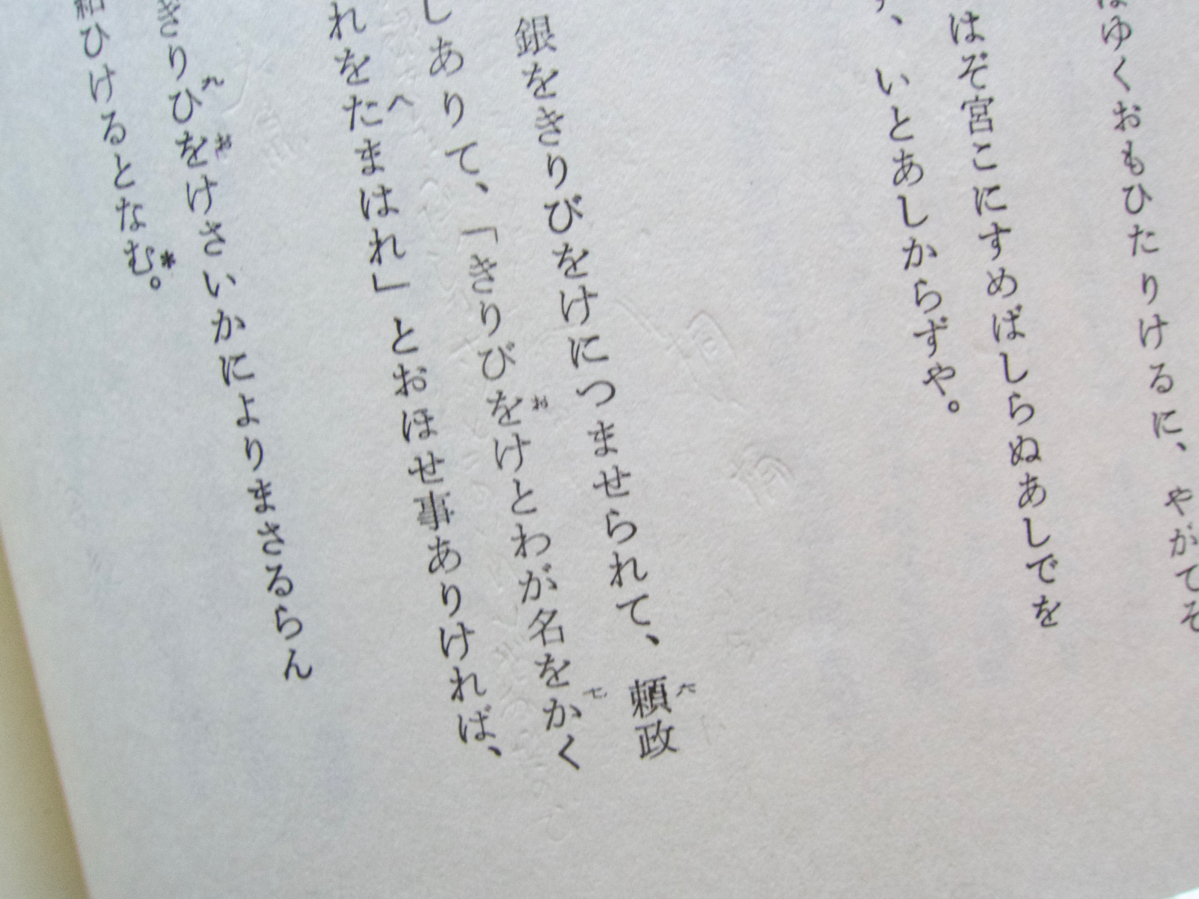 ゆくおもひたりけるに、やがてそ
はぞ宮こにすめばしらぬあしでを
、いとあしからずや。
銀をきりびをけにつませられて、頼政
しありて、「きりびをけとわが名をかく
れをたまはれ」とおほせ事ありければ、
きりひをけさいかによりまさるらん
給ひけるとなむ*。